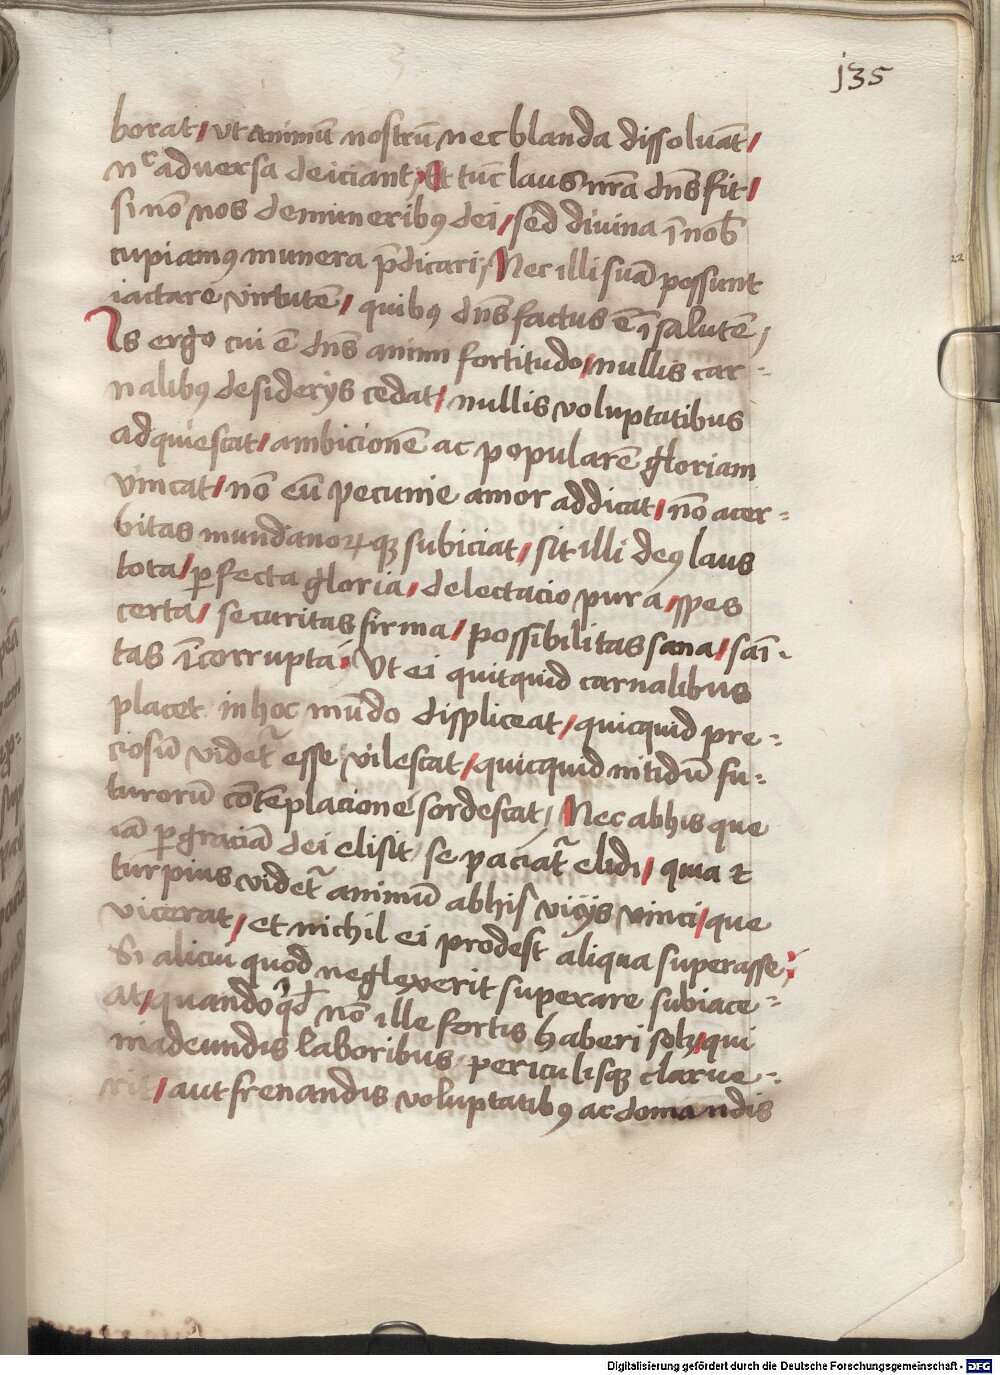 135
borat / ut animū nostrū nec blanda dissoluāt /
nᶜ adversa deiciant / Et tūc laus nr̄a dn̄s fit /
si nō nos de muneribꝰ dei / sed divina ī nob̄
cupiamꝰ munera p̄dicari / Nec illi suā possunt
iactare virtutē / quibꝰ dn̄s factus ē ī salutē /
Is ergo cui ē dn̄s animi fortitudo / nullis car-
nalibꝰ desiderijs cedat / nullis voluptatibus
adquiescat / ambicionē ac popularē gloriam
vincat / nō eū pecunie amor addicat / nō acer-
bitas mundanoꝝ qꝫ subiciat / sit illi deꝰ laus
tota / ꝑfecta gloria / delectacio pura / spes
certa / securitas firma / possibilitas sana / saī-
tas īcorrupta. Ut ei quitquid carnalibus
placet in hoc mūdo displiceat / quicquid pre-
ciosū videt᷑ esse vilescat / quicquid nitidū fu-
turorū cōtēplacione sordescat / Nec ab his que
iā ꝑ graciā dei elisit / se paciat᷑ elidi / quia ⁊
turpius videt᷑ animū ab his vicijs vinci / que
vicerat / et nichil ei prodest aliqua superasse
Si alicui quod neglexerit superare subiace-
at / quando qͥdē nō ille fortis haberi solꝫ / qui
in adeundis laboribus periculisqꝫ clarue-
rit / aut frenandis voluptatibꝰ ac domandis
22
Digitalisierung gefördert durch die Deutsche Forschungsgemeinschaft - DFG